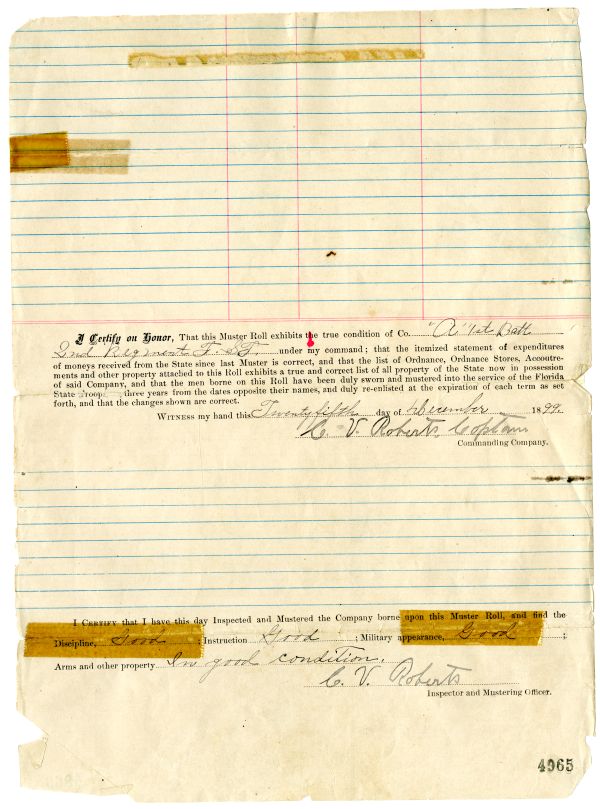 I Certify on Honor, That this Muster Roll exhibits the true condition of Co. "A" 1st Batt
2nd Regiment F. S. T. under my command; that the itemized statement of expenditures
of moneys received from the State since last Muster is correct, and that the list of Ordnance, Ordnance Stores, Accoutre-
ments and other property attached to this Roll exhibits a true and correct list of all property of the State now in possession
of said Company, and that the men borne on this Roll have been duly sworn and mustered into the service of the Florida
State Troops three years from the dates opposite their names, and duly re-enlisted at the expiration of each term as set
forth, and that the changes shown are correct.
WITNESS my hand this Twenty fifth day of December 1899.
C. V. Roberts, Captain
Commanding Company.
I CERTIFY that I have this day Inspected and Mustered the Company borne upon this Muster Roll, and find the
Discipline, Good ; Instruction Good ; Military appearance, Good ;
Arms and other property In good condition.
C. V. Roberts
Inspector and Mustering Officer.
4965